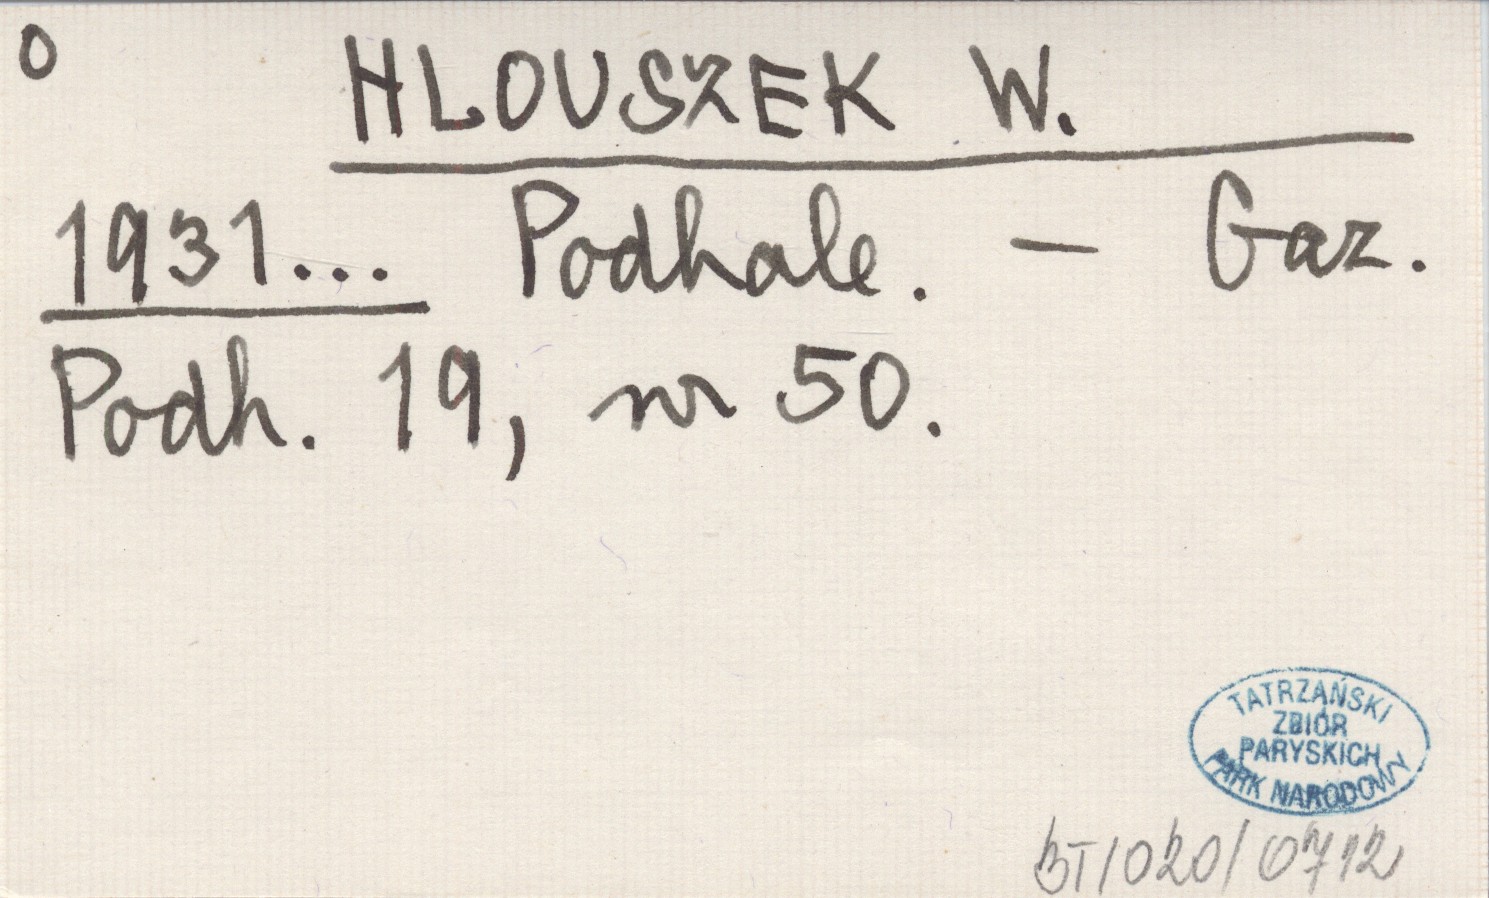 O
HLOUSZEK W.
1931... Podhale. — Gaz.
Podh. 19, nr 50.
TATRZAŃSKI
ZBIÓR
PARYSKICH
PARK NARODOWY
BT/020/0712